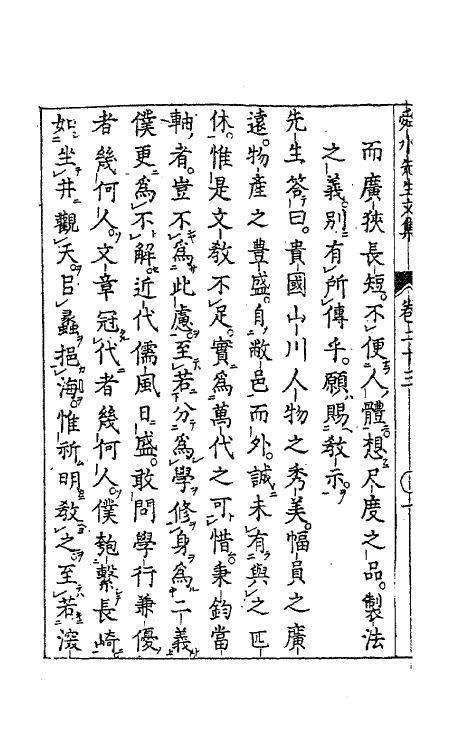 舜水先生文集 卷二十三
而廣狹長短。不便人體想尺度之品。製法
之義。別有所傳乎。願賜教示。
先生答曰。貴國山川人物之秀美。幅員之廣
遠。物產之豐盛。自敝邑而外。誠未有與之匹
休。惟是文教不足。實為萬代之可惜。秉鈞當
軸者。豈不為此慮。至若分為學修身為二義
僕更為不解。近代儒風日盛。敢問學行兼優
者幾何人。文章冠代者幾何人。僕匏繫長崎
如坐井觀天。以蠡挹海。惟祈明教之。至若深